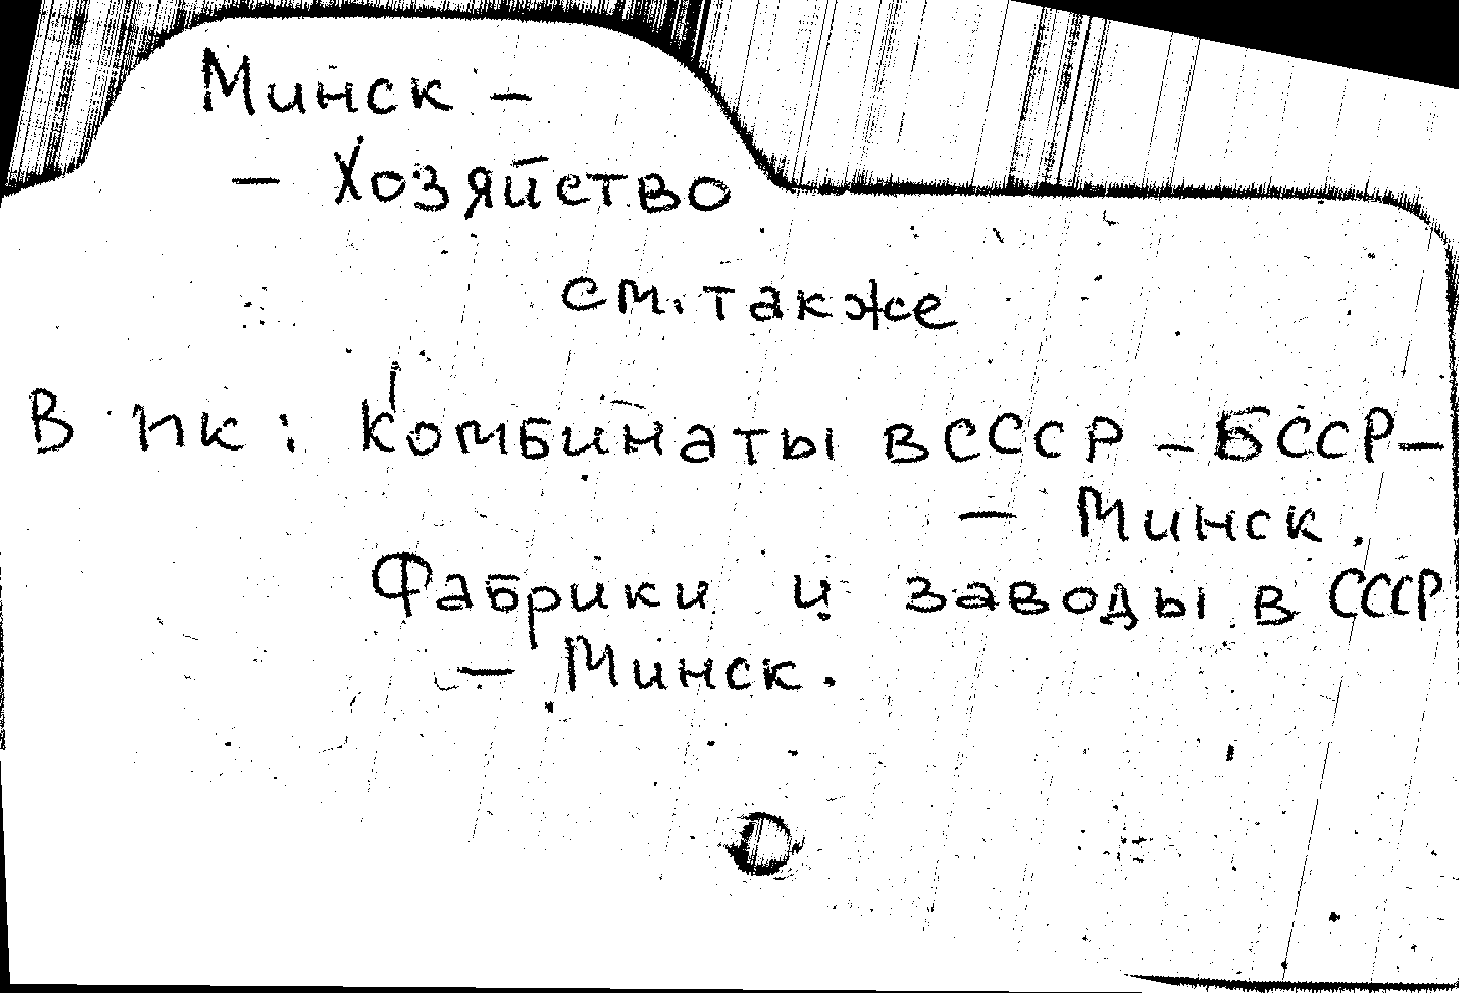 Минск –
– Хозяйство
см. также
В ПК: Комбинаты в СССР – БССР –
– Минск.
Фабрики и заводы в СССР
– Минск.